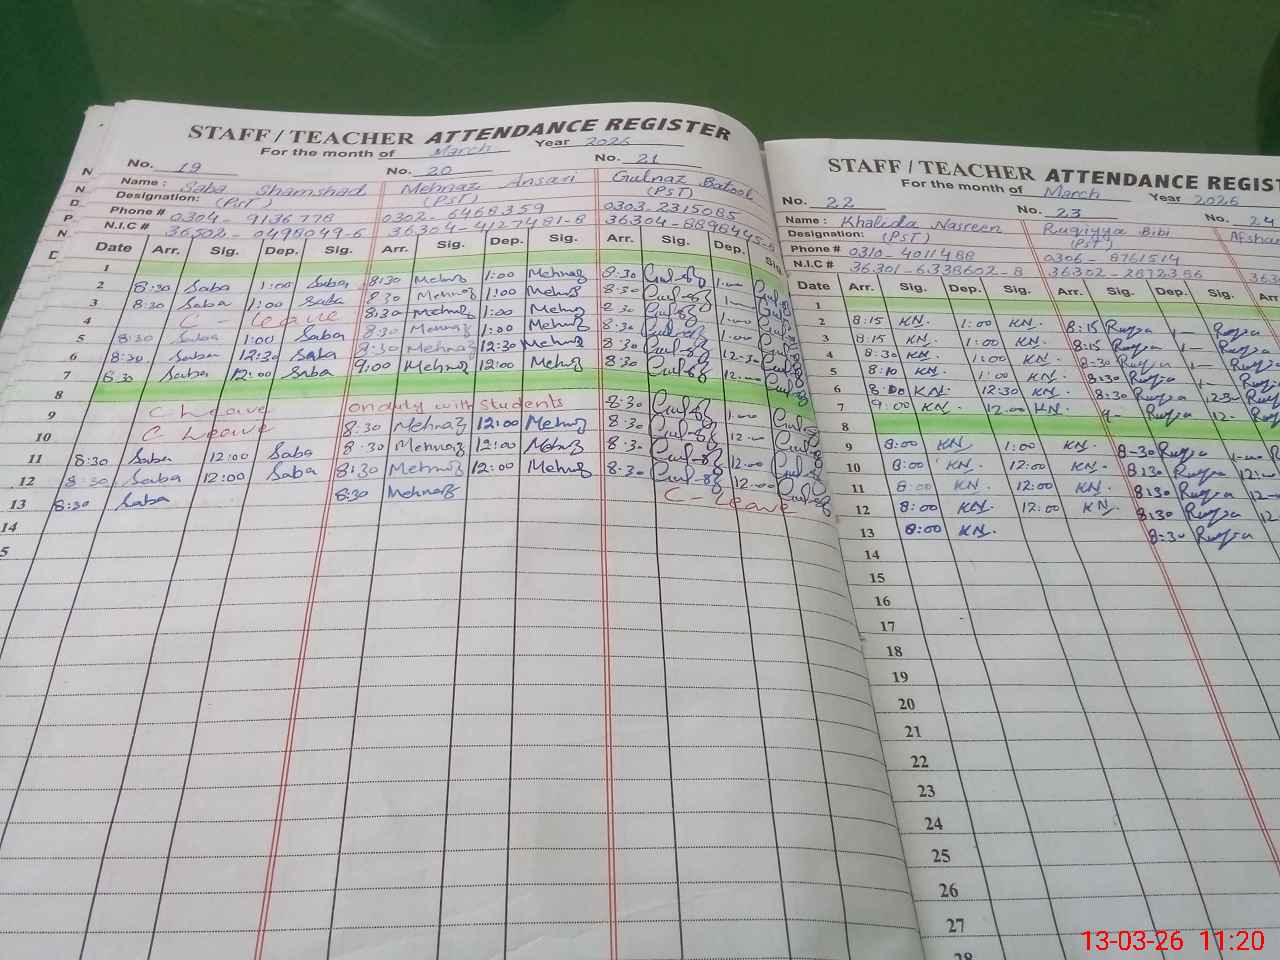 STAFF / TEACHER ATTENDANCE REGISTER
For the month of March Year 2026
No. 19 No. 20 No. 21
Name : Saba Shamshad Mehnaz Ansari Gulnaz Batool
Designation: (PST) (PST) (PST)
Phone # 0304-9136778 0302-6468359 0303-2315085
N.I.C # 36502-0498049-6 36304-4127481-8
Date Arr. Sig. Dep. Sig. Arr. Sig. Dep. Sig. Arr. Sig. Dep. Sig.
1
2 8:30 Saba 1:00 Saba 8:30 Mehnaz 1:00 Mehnaz 8:30
3 8:30 Saba 1:00 Saba 8:30 Mehnaz 1:00 Mehnaz 8:30
4 C-leave 8:30 Mehnaz 1:00 Mehnaz
5 8:30 Saba 1:00 Saba 8:30 Mehnaz 1:00 Mehnaz 8:30
6 8:30 Saba 12:30 Saba 8:30 Mehnaz 12:30 Mehnaz 8:30
7 8:30 Saba 12:00 Saba 9:00 Mehnaz 12:00 Mehnaz 8:30
8
9 C leave on duty with students 8:30
10 C leave 8:30 Mehnaz 12:00 Mehnaz 8:30
11 8:30 Saba 12:00 Saba 8:30 Mehnaz 12:00 Mehnaz 8:30
12 8:30 Saba 12:00 Saba 8:30 Mehnaz 12:00 Mehnaz 8:30
13 8:30 Saba 8:30 Mehnaz C-leave
14
5
STAFF / TEACHER ATTENDANCE REGIST
For the month of March Year 2026
No. 22 No. 23 No. 24
Name : Khalida Nasreen Ruqiyya Bibi Afsha
Designation: (PST) (PST)
Phone # 0310-4011488 0306-8761514
N.I.C # 36301-6338602-8 36302-2872386
Date Arr. Sig. Dep. Sig. Arr. Sig. Dep. Sig. Arr.
1
2 8:15 KN. 1:00 KN. 8:15
3 8:15 KN. 1:00 KN. 8:15
4 8:30 KN. 1:00 KN. 8:30
5 8:10 KN. 1:00 KN. 8:30
6 8:00 KN. 12:30 KN. 8:30
7 9:00 KN. 12:00 KN.
8
9 8:00 KN. 1:00 KN. 8:30
10 8:00 KN. 12:00 KN. 8:30
11 8:00 KN. 12:00 KN. 8:30
12 8:00 KN. 12:00 KN. 8:30
13 8:00 KN. 8:30
14
15
16
17
18
19
20
21
22
23
24
25
26
27
28
13-03-26 11:20